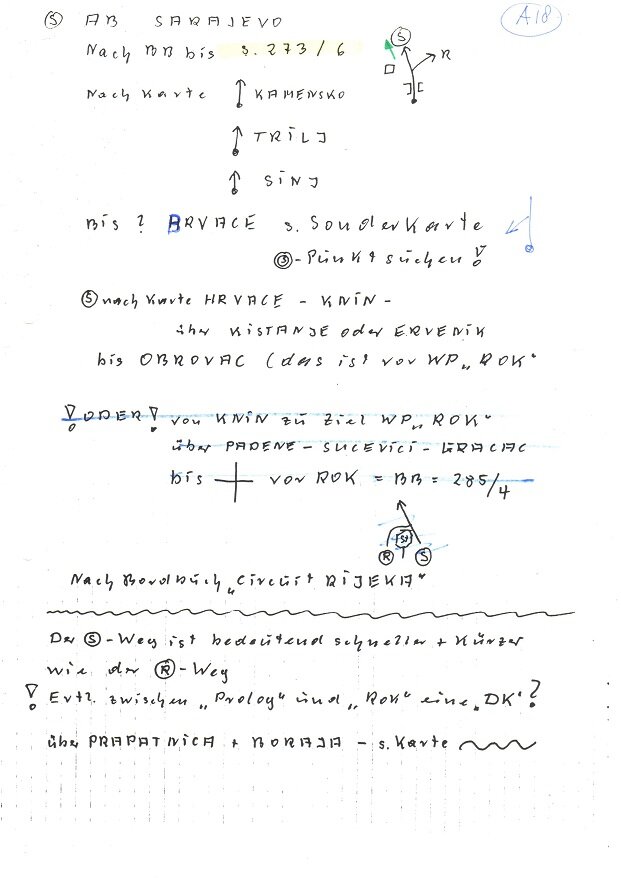 Ⓢ AB SARAJEVO
A18
Nach BB bis S. 273/6
S
R
Nach Karte ↑ KAMENSKO
↑ TRILJ
↑ SINJ
Bis ? HRVACE s. Sonderkarte
Ⓢ-Punkt suchen !
Ⓢ nach Karte HRVACE - KNIN -
über KISTANJE oder ERVENIK
bis OBROVAC (das ist vor WP „ROK"
! ODER ! von KNIN zu Ziel WP „ROK"
über PADENE - SUCEVICI - GRACAC
bis ┼ vor ROK = BB = 285/4
R St S
Nach Bordbuch „Circuit RIJEKA"
Der Ⓢ-Weg ist bedeutend schneller + kürzer
wie der Ⓡ-Weg
! Evtl. zwischen „Prolog" und „ROK" eine „DK" ?
über PRAPATNICA + BORAJA - s. Karte